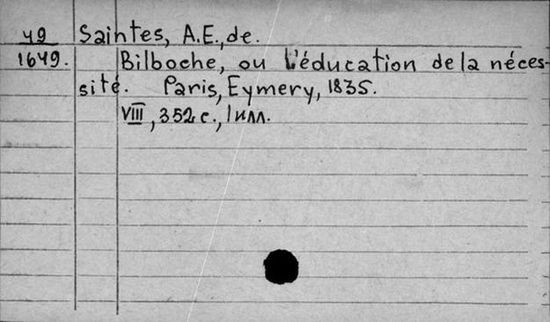 49 Saintes, A.E., de.
1649. Bilboche, ou L'éducation de la néces-
sité. Paris, Eymery, 1835.
VIII, 352 с., 1 илл.